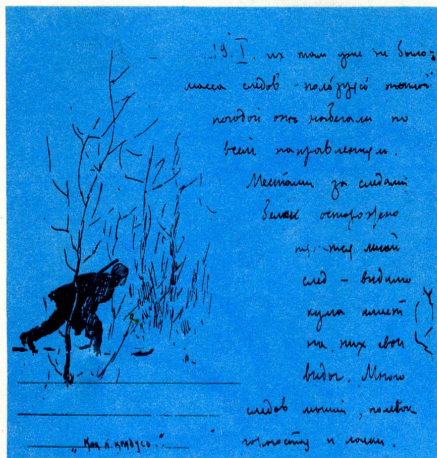 19.I. их там уже не было,
масса следов - пользуясь теплой
погодой они набегали по
всем направлениям.
Местами за следами
белак осторожно
тянется лисий
след - видимо
кума имеет
на них свои
виды. Много
следов мышей, полевок
горностая и ласки.
"Как я крадусь."